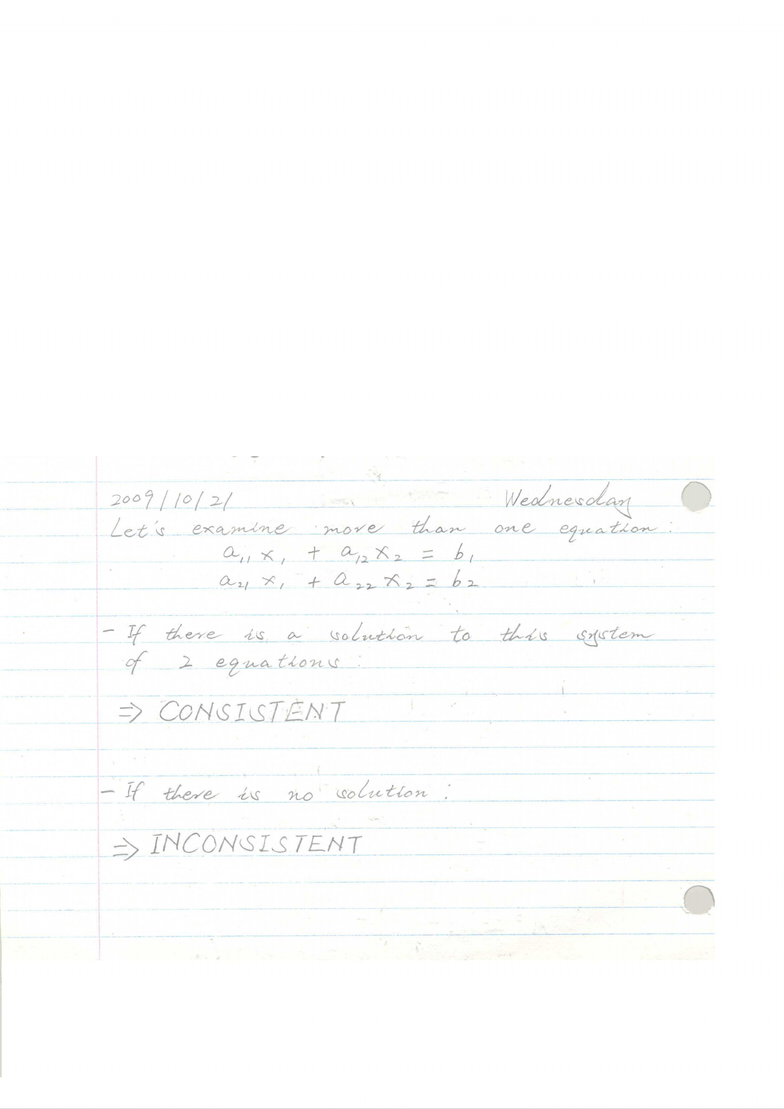 2009/10/21 Wednesday
Let's examine more than one equation:
a₁₁x₁ + a₁₂x₂ = b₁
a₂₁x₁ + a₂₂x₂ = b₂
- If there is a solution to this system
of 2 equations:
⇒ CONSISTENT
- If there is no solution:
⇒ INCONSISTENT